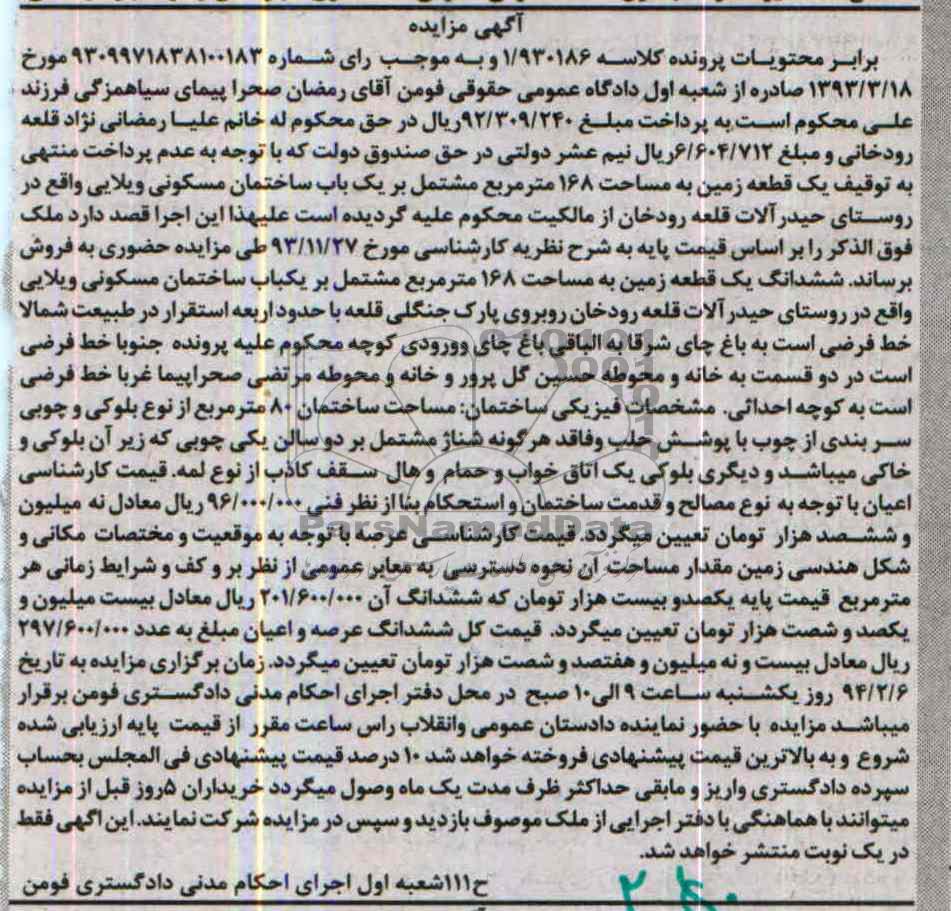 آگهی مزایده
برابر محتویات پرونده کلاسه ۱/۹۳۰۱۸۶ و به موجب رای شماره ۹۳۰۹۹۷۱۸۳۸۱۰۰۱۸۳ مورخ
۱۳۹۳/۳/۱۸ صادره از شعبه اول دادگاه عمومی حقوقی فومن آقای رمضان صحرا پیمای سیاهمزگی فرزند
علی محکوم است به پرداخت مبلغ ۹۲/۳۰۹/۲۴۰ریال در حق محکوم له خانم علیا رمضانی نژاد قلعه
رودخانی و مبلغ ۶/۶۰۴/۷۱۲ریال نیم عشر دولتی در حق صندوق دولت که با توجه به عدم پرداخت منتهی
به توقیف یک قطعه زمین به مساحت ۱۶۸ مترمربع مشتمل بر یک باب ساختمان مسکونی ویلایی واقع در
روستای حیدرآلات قلعه رودخان از مالکیت محکوم علیه گردیده است علیهذا این اجرا قصد دارد ملک
فوق الذکر را بر اساس قیمت پایه به شرح نظریه کارشناسی مورخ ۹۳/۱۱/۲۷ طی مزایده حضوری به فروش
برساند. ششدانگ یک قطعه زمین به مساحت ۱۶۸ مترمربع مشتمل بر یکباب ساختمان مسکونی ویلایی
واقع در روستای حیدرآلات قلعه رودخان روبروی پارک جنگلی قلعه با حدود اربعه استقرار در طبیعت شمالا
خط فرضی است به باغ چای شرقا به الباقی باغ چای وورودی کوچه محکوم علیه پرونده جنوبا خط فرضی
است در دو قسمت به خانه و محوطه حسین گل پرور و خانه و محوطه مرتضی صحراپیما غربا خط فرضی
است به کوچه احداثی. مشخصات فیزیکی ساختمان: مساحت ساختمان ۸۰ مترمربع از نوع بلوکی و چوبی
سر بندی از چوب با پوشش حلب وفاقد هرگونه شناژ مشتمل بر دو سالن یکی چوبی که زیر آن بلوکی و
خاکی میباشد و دیگری بلوکی یک اتاق خواب و حمام و هال سقف کاذب از نوع لمه. قیمت کارشناسی
اعیان با توجه به نوع مصالح و قدمت ساختمان و استحکام بنا از نظر فنی ۹۶/۰۰۰/۰۰۰ ریال معادل نه میلیون
و ششصد هزار تومان تعیین میگردد. قیمت کارشناسی عرصه با توجه به موقعیت و مختصات مکانی و
شکل هندسی زمین مقدار مساحت آن نحوه دسترسی به معابر عمومی از نظر بر و کف و شرایط زمانی هر
مترمربع قیمت پایه یکصدو بیست هزار تومان که ششدانگ آن ۲۰۱/۶۰۰/۰۰۰ ریال معادل بیست میلیون و
یکصد و شصت هزار تومان تعیین میگردد. قیمت کل ششدانگ عرصه و اعیان مبلغ به عدد ۲۹۷/۶۰۰/۰۰۰
ریال معادل بیست و نه میلیون و هفتصد و شصت هزار تومان تعیین میگردد. زمان برگزاری مزایده به تاریخ
۹۴/۲/۶ روز یکشنبه ساعت ۹ الی۱۰ صبح در محل دفتر اجرای احکام مدنی دادگستری فومن برقرار
میباشد مزایده با حضور نماینده دادستان عمومی وانقلاب راس ساعت مقرر از قیمت پایه ارزیابی شده
شروع و به بالاترین قیمت پیشنهادی فروخته خواهد شد ۱۰ درصد قیمت پیشنهادی فی المجلس بحساب
سپرده دادگستری واریز و مابقی حداکثر ظرف مدت یک ماه وصول میگردد خریداران ۵روز قبل از مزایده
میتوانند با هماهنگی با دفتر اجرایی از ملک موصوف بازدید و سپس در مزایده شرکت نمایند. این اگهی فقط
در یک نوبت منتشر خواهد شد.
ح۱۱۱شعبه اول اجرای احکام مدنی دادگستری فومن
ParsNamadData